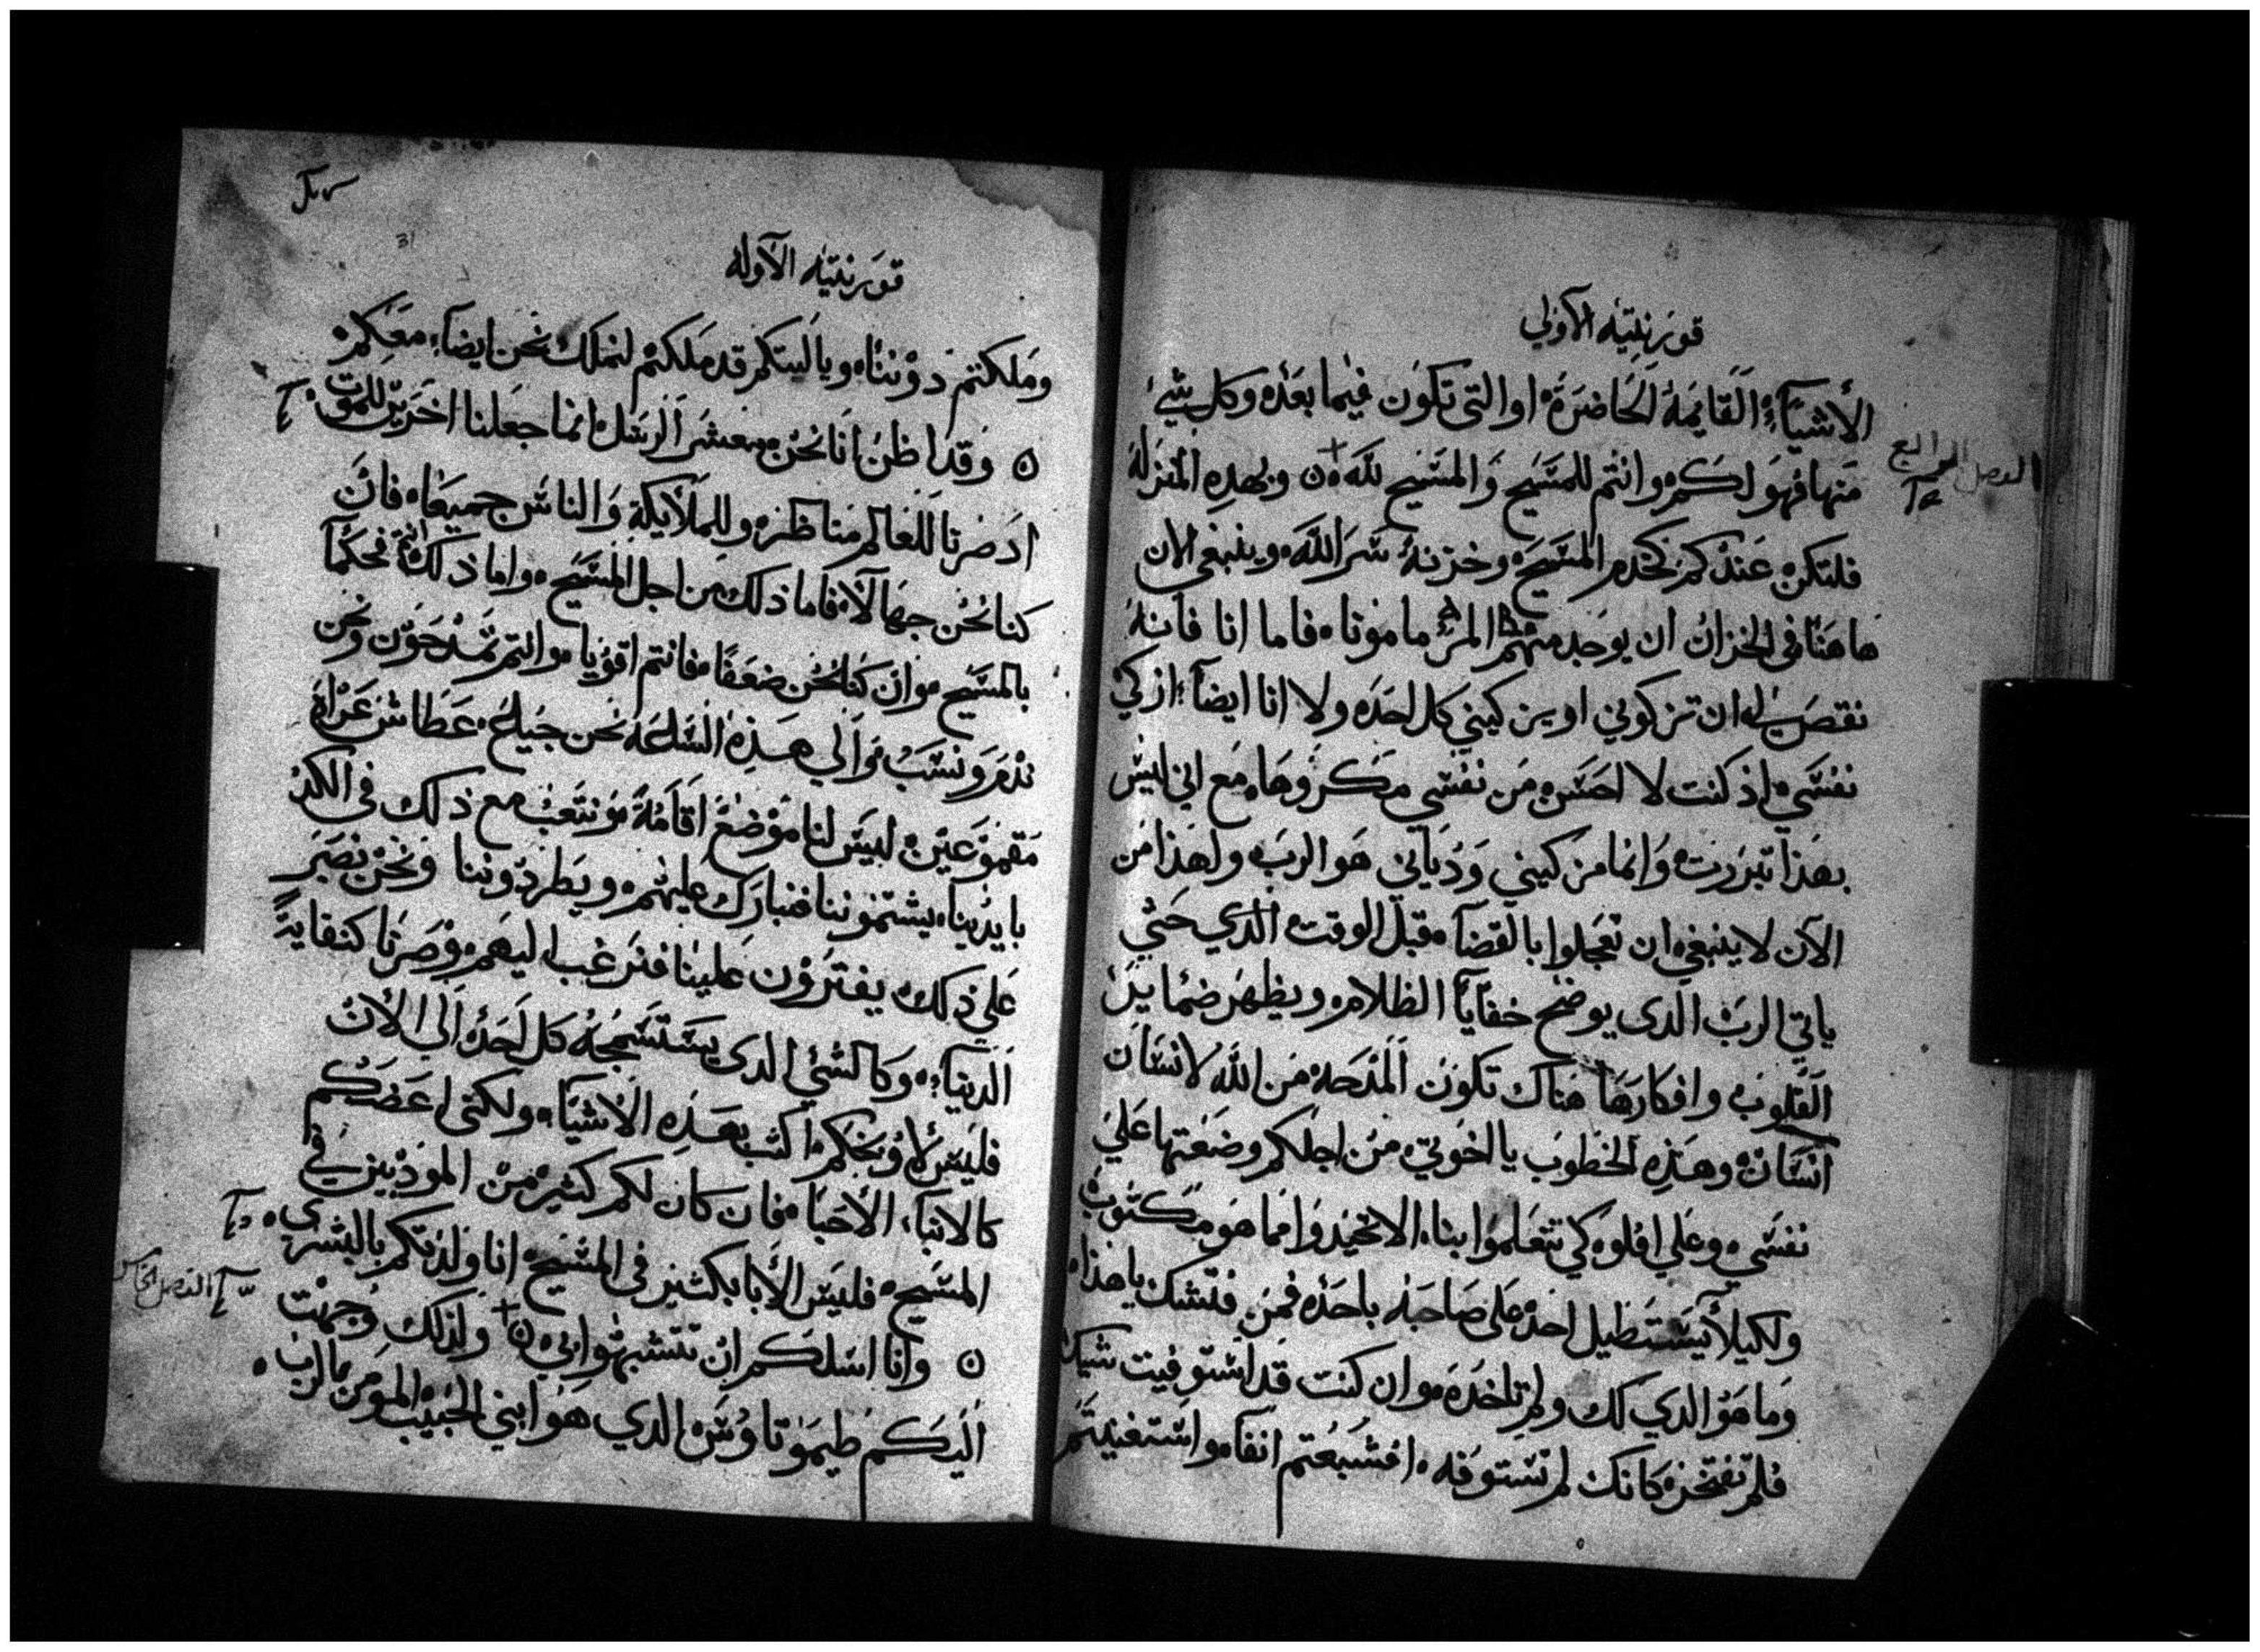 قورنتيه الاولي
الأشيآء القايمة الحاضرة او التي تكون فيما بعده وكل شيء
الفصل الرابع
منها فهو لكم وانتم للمسيح والمسيح لله وبهده المنزلة
فلتكن عندكم كخدم المسيح وخزنة سر الله وينبغي الان
هاهنا في الخزان ان يوجد منهم المرء ماموناه فاما انا فانه
نقص لي ان تزكوني او يزكيني كل احد ولا انا ايضآ ازكي
نفسي اذ كنت لا احس من نفسي مكروها مع اني ليس
بهذا تبررت وانما مزكيني ودياني هو الرب ولهذا من
الآن لا ينبغي ان تعجلوا بالقضآ قبل الوقت الدي حتي
ياتي الرب الدى يوضح خفايآ الظلام ويظهر ضماير
القلوب وافكارها هناك تكون المدحه من الله لانسان
انسان وهذه الخطوب يا اخوتي من اجلكم وضعتها علي
نفسي وعلي افلوه كي تتعلموا بنا الا تخيدوا مما هو مكتوب
ولكيلا يستطيل احد علي صاحبه باحد فمن فتشك ياهذا
وما هو الدي لك ولم تاخده وان كنت قد استوفيت شيك
فلم تفتخر كانك لم تستوفه افشبعتم انفا واستغنيتم
قورنتيه الاوله
31
وملكتم دوننا ويا ليتكم قد ملكتم لنملك نحن ايضآ معكم
وقد اظن انا نحن معشر الرسل انما جعلنا اخرين للموت
اد صرنا للعالم مناظر وللملآيكة والناس جميعا فان
كنا نحن جهالا فاما ذلك من اجل المسيح واما ذلك انتم فحكما
بالمسيح وان كنا نحن ضعفا فانتم اقويا وانتم تمدحون ونحن
ندم ونسب والي هذه الساعة نحن جياع عطاش عراة
مقموعين ليس لنا موضع اقامة ونتعب مع ذلك في الكد
بايدينا يشتموننا فنبارك عليهم ويطردوننا ونحن نصبر
علي ذلك يفترون علينا فنرغب اليهم وصرنا كنفاية
الدنيآ وكالشي الدى يستسمجه كل احد الي الآن
فليس لاوبخكم اكتب بهذه الاشيآء ولكني اعضكم
كالابنآء الأحبا فان كان لكم كثير من المودبين في
المسيح فليس الأبا بكثير في المسيح انا ولدتكم بالبشري
الفصل الخامس
وانا اسلكم ان تتشبهوا بي ولذلك وجهت
اليكم طيموتاوس الدي هو ابني الحبيب المومن بالرب